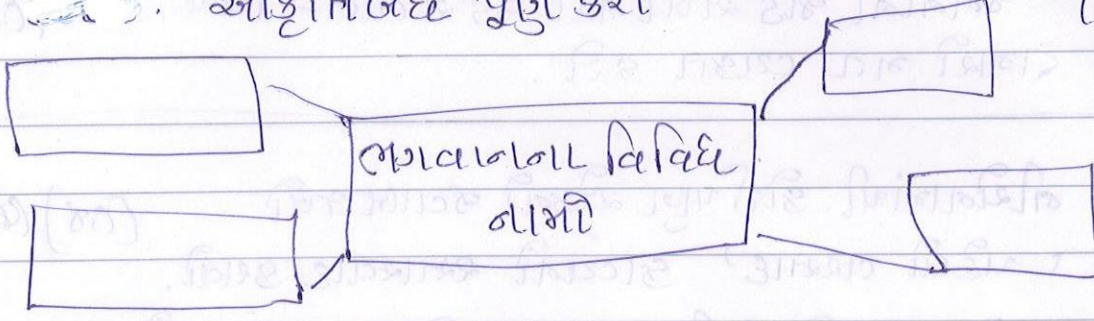 આકૃતિબંધ પૂર્ણ કરો
ભગવાનના વિવિધ
નામો